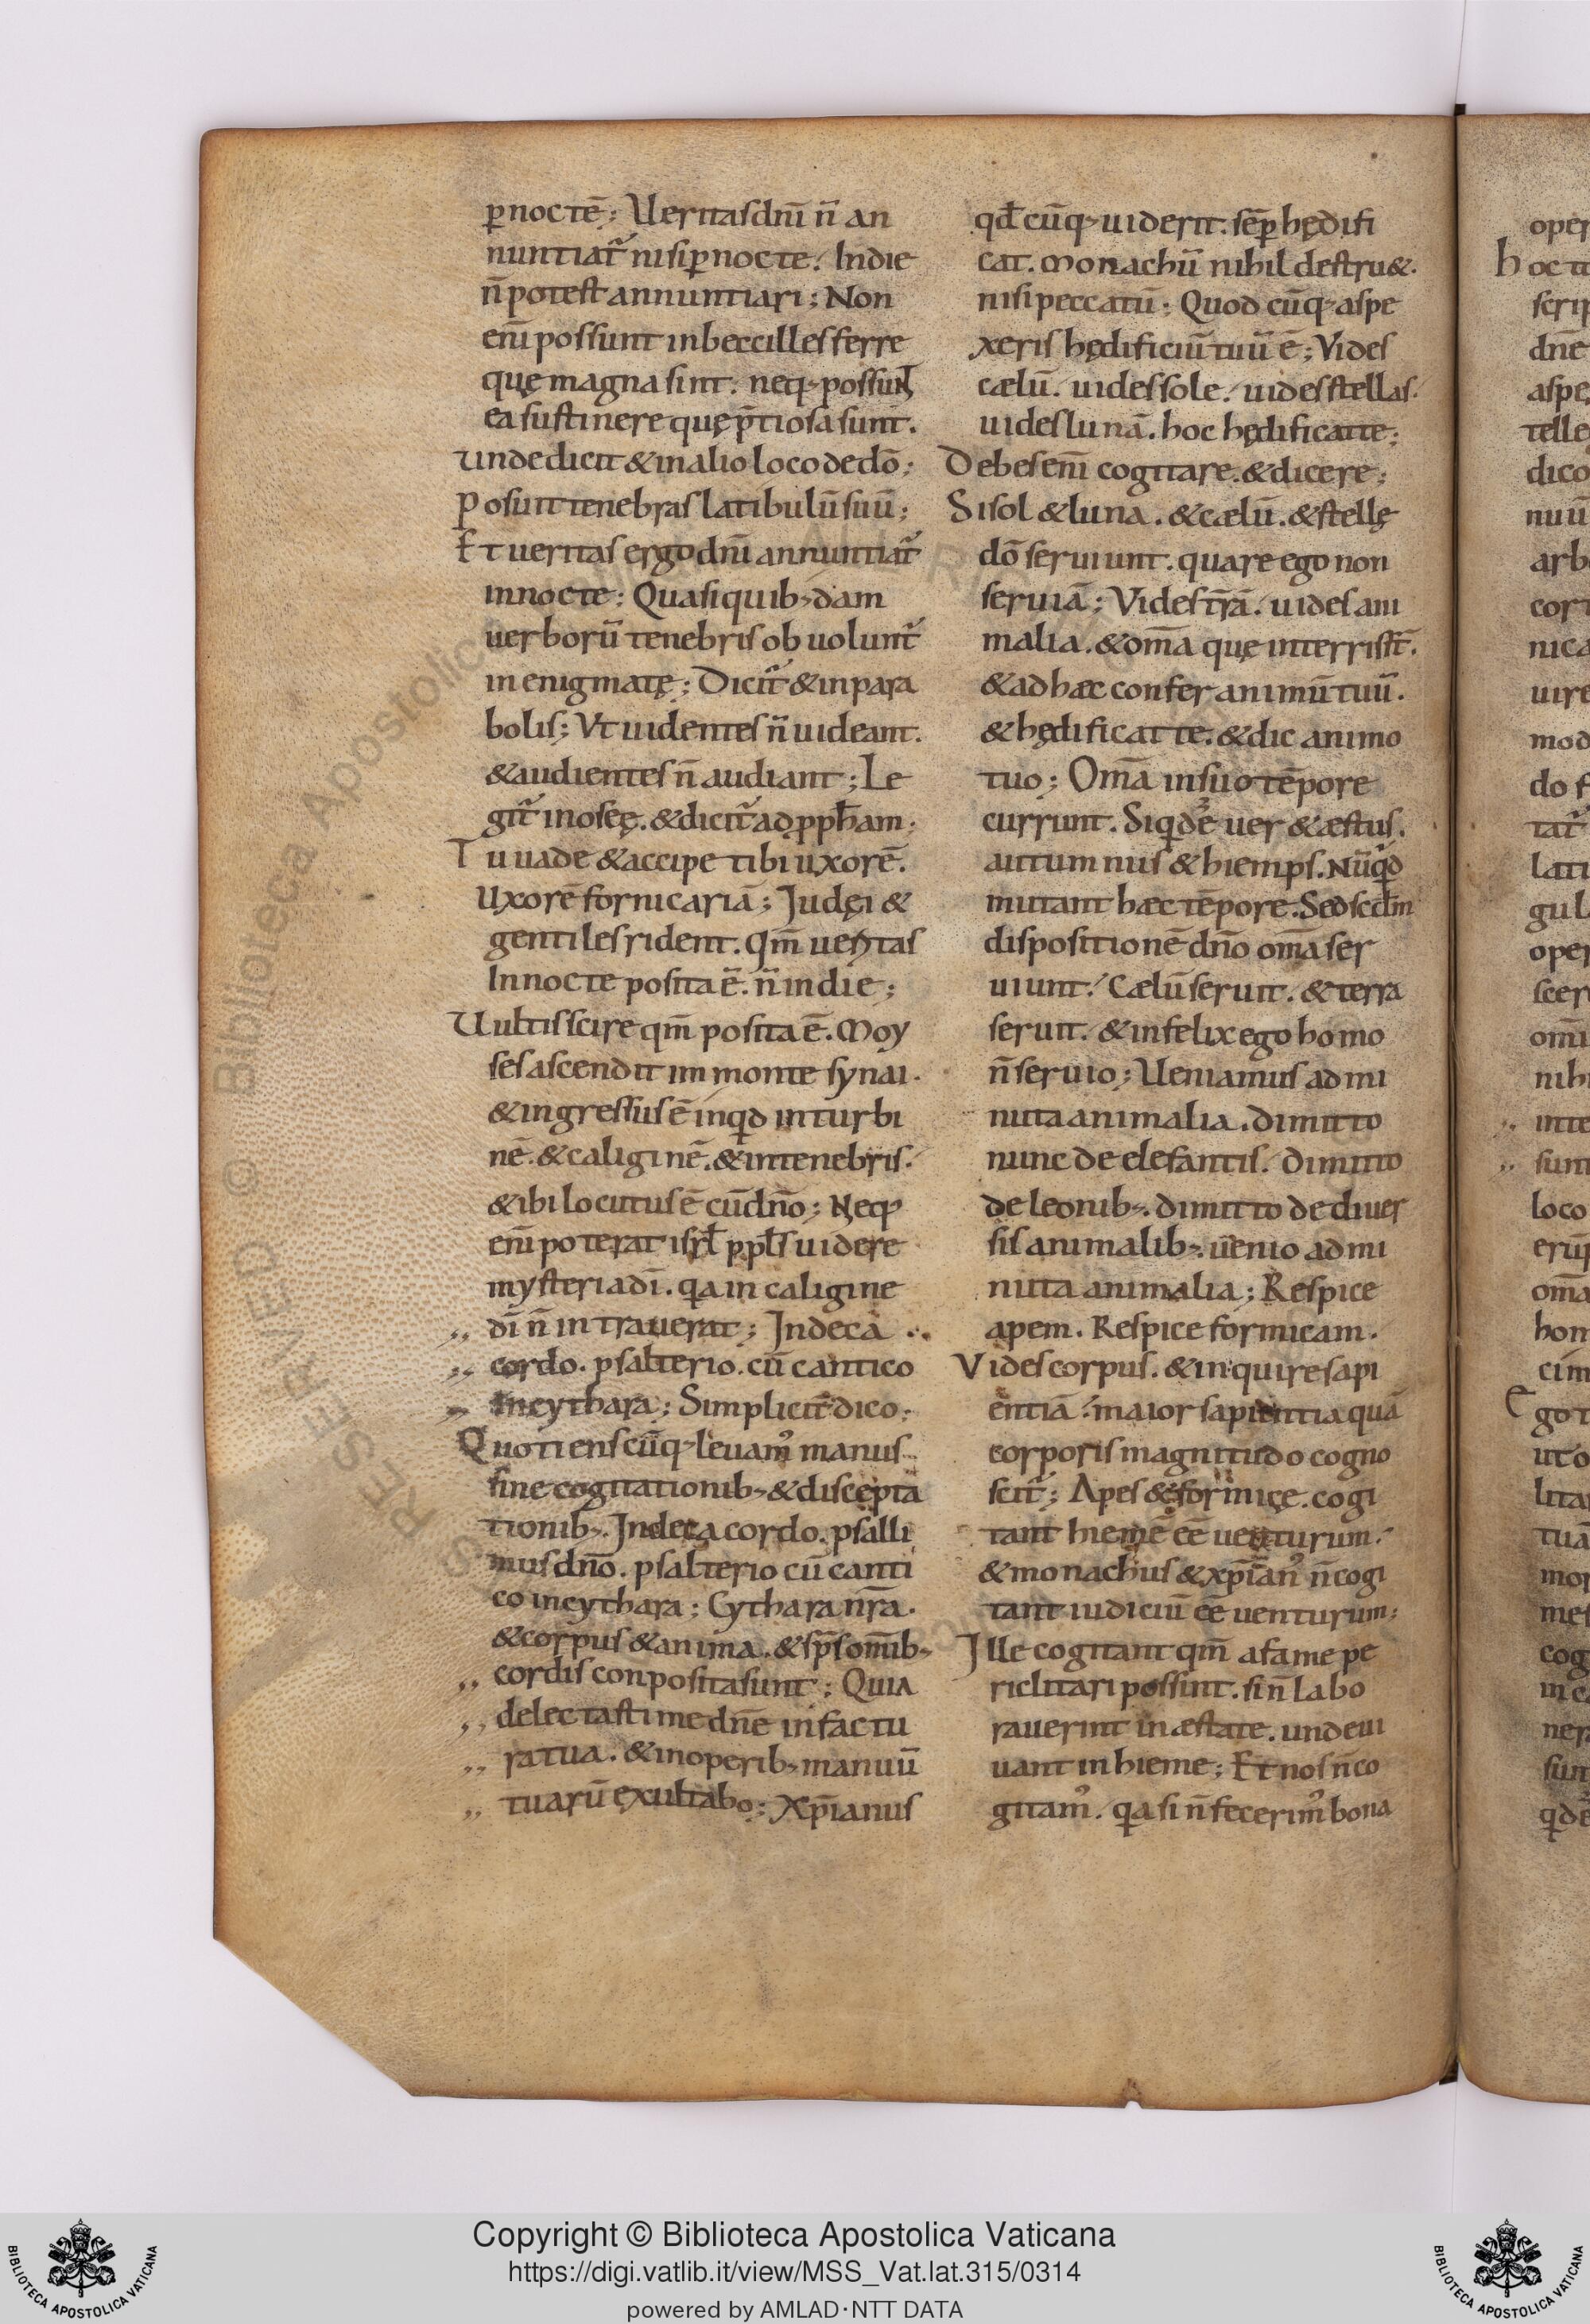 ꝑ nocte᷑; Ueritas dn̄i n̄ an
nuntiat᷑ nisi ꝑ nocte. In die
n̄ potest annuntiari; Non
eni᷑ possunt inbeccilles ferre
quę magna sint. neq; possunt
ea sustinere quę p̄tiosa sunt.
Unde dicit & in alio loco de dō;
Posuit tenebras latibulū suū;
Et ueritas ergo dn̄i annuntiat᷑
in nocte; Quasi quib; dam
uerborū tenebris obuoluit᷑
in enigmatę; Dicit᷑ & in para
bolis; Ut uidentes n̄ uideant.
& audientes n̄ audiant; Le
git᷑ in oseę. & dicit᷑ ad ꝓpħam;
Tu uade & accipe tibi uxorē.
Uxorē fornicariā; Iudęi &
gentiles rident. Qm̄ ueritas
In nocte posita ē. n̄ in die;
Uultis scire qm̄ posita ē. Moy
ses ascendit im monte synai.
& ingressus ē inqd in turbi
nē. & caliginē. & in tenebris.
& ibi locutus ē cū dn̄o; Neq;
eni᷑ poterat isrł ppłs uidere
mysteria dī. qa in caligine
„ dī n̄ intrauerat; In deca
„ cordo. psalterio. cū cantico
„ in cythara; Simplicit᷑ dico;
Quotienscūq; leuam᷒ manus
sine cogitationib; & discepta
tionib;. In deca cordo. psalli
mus dn̄o. psalterio cū canti
co in cythara; Cythara nr̄a.
& corpus & anima. & sp̄s om̄ib;
„ cordis conposita sunt; Quia
„ delectasti me dn̄e in factu
„ ra tua. & in operib; manuū
„ tuarū exultabo; Xp̄ianus
qđ cūq; uiderit. sēꝑ hędifi
cat. Monachū nihil destru&.
nisi peccatū; Quod cūq; aspe
xeris hędificiū tuū ē; Vides
cælū. uides sole. uides stellas.
uides lunā. hoc hędificat te;
Debes eni᷑ cogitare. & dicere;
Si sol & luna. & cælū. & stellę
dō seruiunt. quare ego non
seruiā; Vides tr̄ā. uides ani
malia. & om̄a quę in terris st̄.
& ad hæc confer animū tuū.
& hędificat te. & dic animo
tuo; Om̄a in suo tēpore
currunt. Siqdē uer & æstus.
autumnus & hiemps. Nūqd
mutant hæc tēpore. Sed scdm
dispositionē dn̄o om̄a ser
uiunt. Cælū seruit. & terra
seruit. & infelix ego homo
n̄ seruio; Ueniamus ad mi
nuta animalia. dimitto
nunc de elefantis. dimitto
de leonib;. dimitto de diuer
sis animalib;. uenio ad mi
nuta animalia; Respice
apem. Respice formicam.
Vides corpus. & inquire sapi
entiā. maior sapientia quā
corporis magnitudo cogno
scit᷑; Apes & formiçe. cogi
tant hiemē ēē uenturum.
& monachus & xp̄ian᷒ n̄ cogi
tant iudiciū ēē uenturum;
Ille cogitant qm̄ a fame pe
riclitari possint. si n̄ labo
rauerint in æstate. unde ui
uant in hieme; Et nos n̄ co
gitam᷒. qa si n̄ fecerim᷒ bona
Copyright © Biblioteca Apostolica Vaticana
https://digi.vatlib.it/view/MSS_Vat.lat.315/0314
powered by AMLAD·NTT DATA